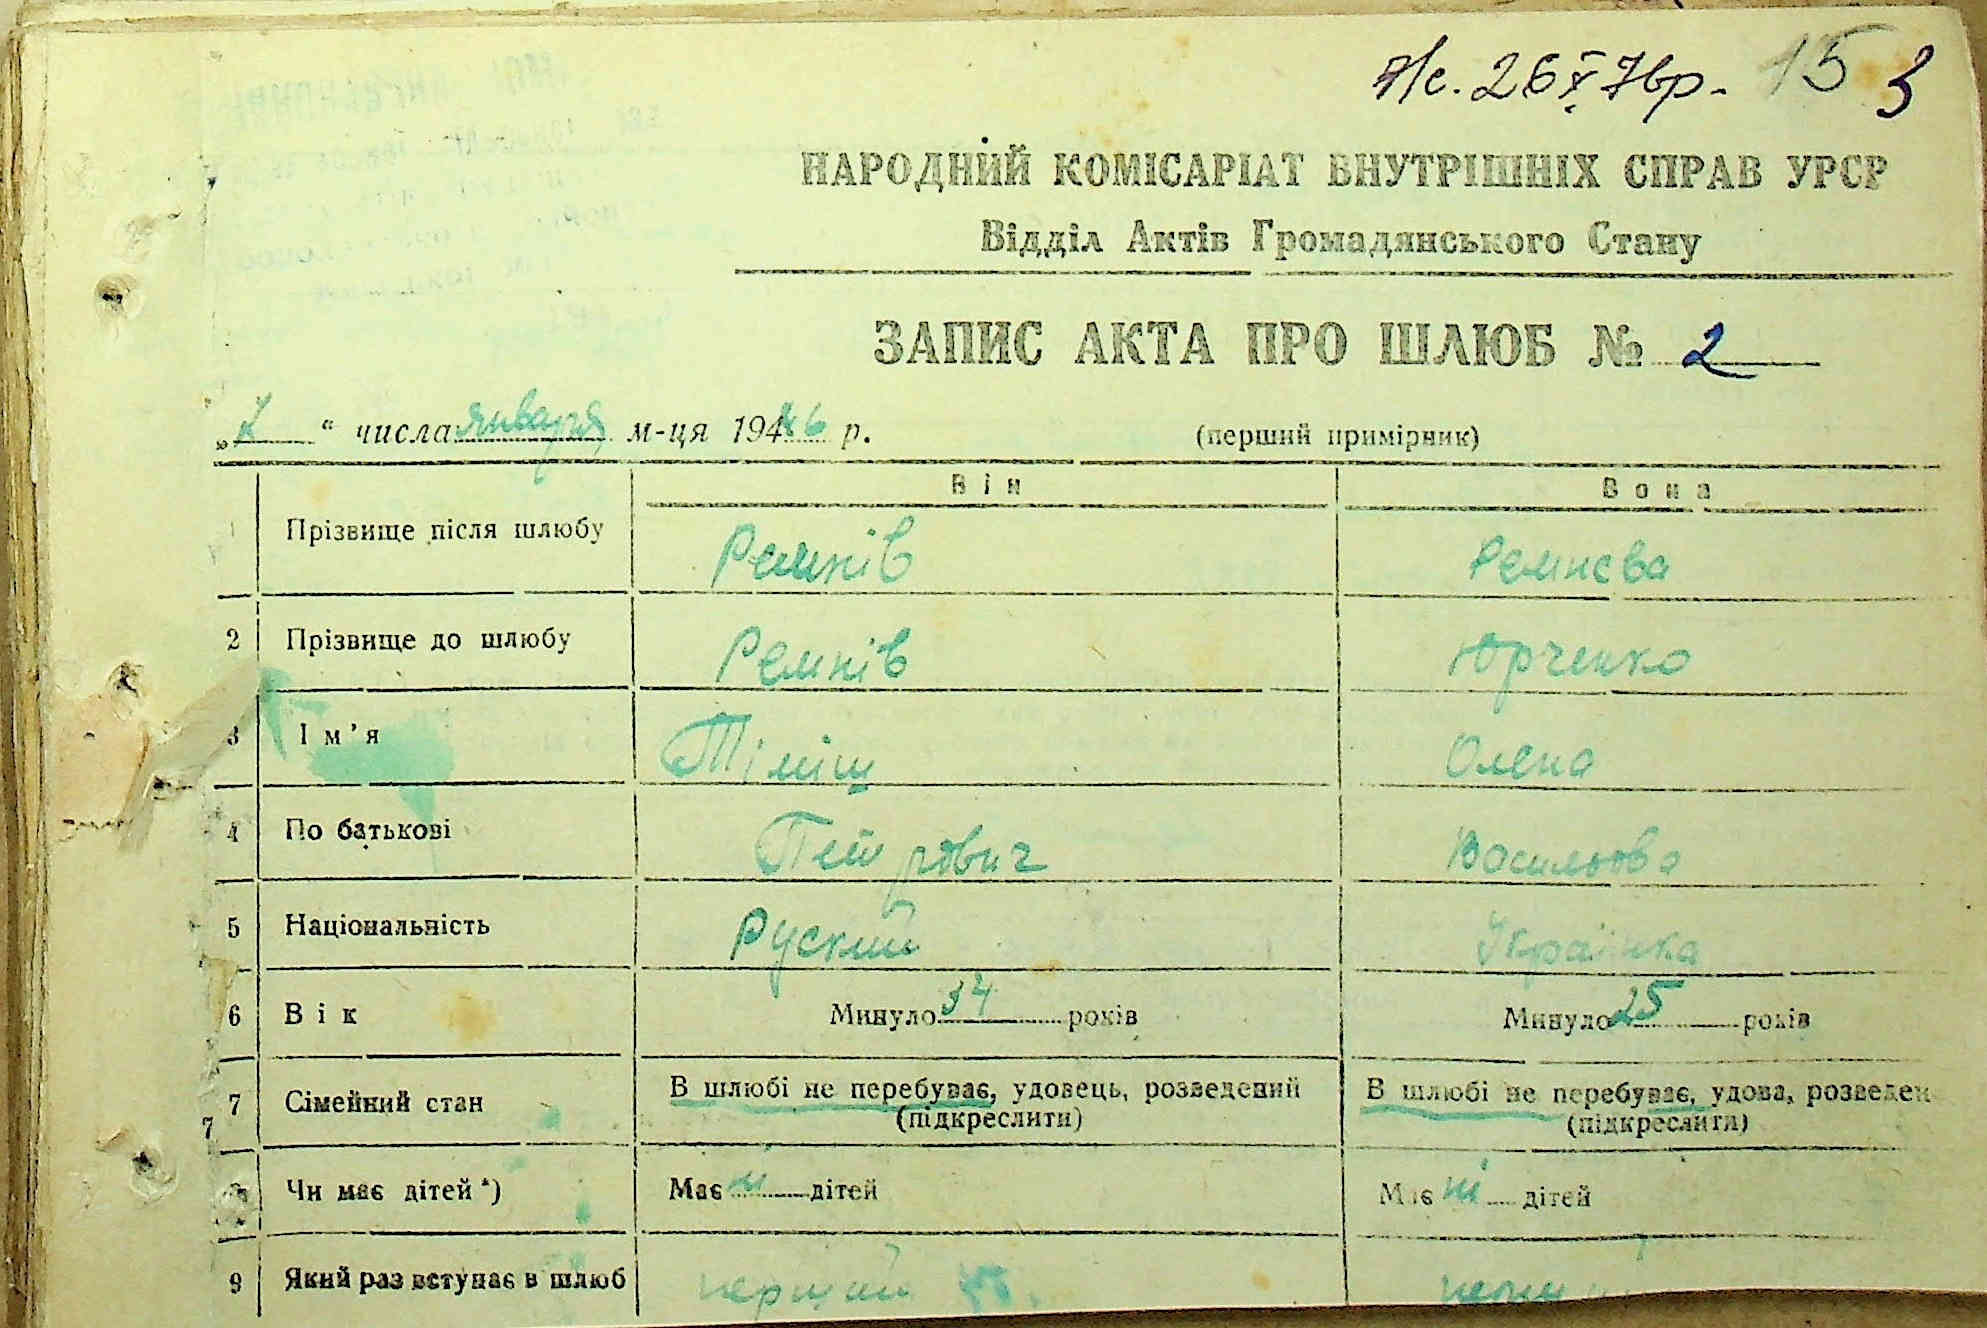 п/с. 26 X 76р. 15 3
НАРОДНИЙ КОМІСАРІАТ ВНУТРІШНІХ СПРАВ УРСР
Відділ Актів Громадянського Стану
ЗАПИС АКТА ПРО ШЛЮБ № 2
" числа января м-ця 1946 р. (перший примірник)
Він Вона
1 Прізвище після шлюбу Ремнів Ремнєва
2 Прізвище до шлюбу Ремнів Юрченко
3 Ім'я Тіміш Олена
4 По батькові Петрович Васильова
5 Національність Руский Українка
6 Вік Минуло 34 років Минуло 25 років
7 Сімейний стан В шлюбі не перебуває, удовець, розведений В шлюбі не перебуває, удова, розведен
(підкреслити) (підкреслити)
7
Чи має дітей*) Має ні дітей Має ні дітей
9 Який раз вступає в шлюб перший